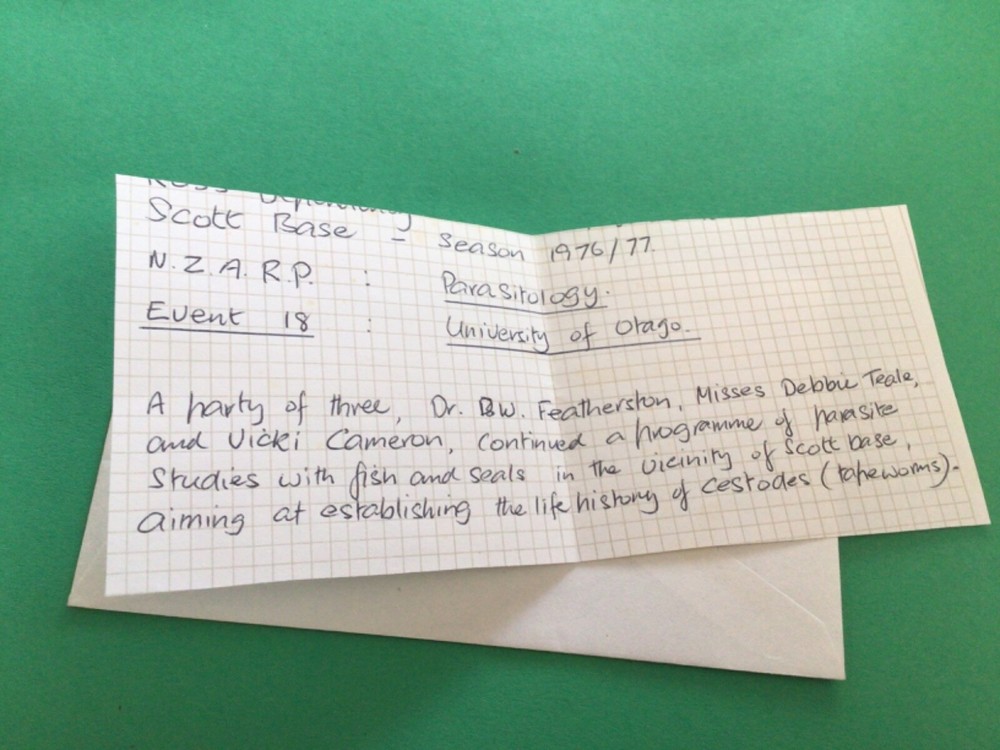 Ross Dependency
Scott Base - Season 1976/77.
N.Z.A.R.P. : Parasitology.
Event 18 : University of Otago.
A party of three, Dr. B.W. Featherston, Misses Debbie Teale,
and Vicki Cameron, continued a programme of parasite
Studies with fish and seals in the vicinity of Scott base,
aiming at establishing the life history of cestodes (tapeworms).